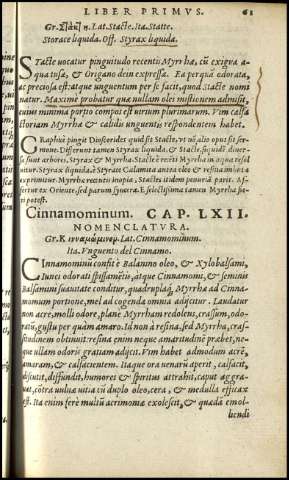 LIBER PRIMVS. 61
Gr. Lat. Stacte. Ita. Statte.
Storace liquida. Off. Styrax liquida.
STacte uocatur pinguitudo recentis Myrrhæ, cū exigua a-
qua tusæ, & organo deim expressæ. Ea per quā odorata,
ac preciosa est: atque unguentum per se facit, quod Stacte nomi
natur. Maxime probatur quæ nullam olei mistionem admisit,
cuius minima portio compos est uirium plurimarum. Vim calfa
ctoriam Myrrhæ & calidis unguentis respondentem habet.
GRaphice pingit Dioscorides quid sit Stacte, ut nō alio opus sit ser-
mone. Differunt tamen Styrax liquida, & Stacte, sicuti diuer-
sæ sunt arbores, Styrax & Myrrha. Stacte è recēti Myrrha in aqua resol
uitur. Styrax liquida, è Styracte Calamita antea oleo & resina imbuta
exprimitur. Myrrhæ recentis inopia, Stactes itidem penuriā parit. Af-
fertur ex Oriente, sed parum syncera. E selectissima tamen Myrrha fie-
ri potest.
Cinnamominum. CAP. LXII.
NOMENCLATVRA.
Gr. Κινναμώμινον. Lat. Cinnamominum.
Ita. Vnguento del Cinnamo.
CInnamominū confit è Balanino oleo, & Xylobalsami,
Iunci odorati spissamētis, atque Cinnamomi, & seminis
Balsamini suauitate conditur, quadruplaq; Myrrhæ ad Cinna-
momum portione, mel ad cogenda omnia adijcitur. Laudatur
non acre, molli odore, plane Myrrham redolens, crassum, odo-
ratū, gustu per quàm amaro. Id non à resina, sed Myrrha, cras-
situdinem obtinuit. resina enim neque amaritudinē præbet, ne-
que ullam odoris gratiam adijcit. Vim habet admodum acrē,
amaram, & calfacientem. Itaque ora uenarū aperit, calfacit,
discutit, diffundit, humores & spiritus attrahit, caput aggra-
uat, cōtra uuluæ uitia cū duplo oleo, cera, & medulla efficax
est. Ita enim ferè multū acrimoniæ exolescit, & quædā emol-
liendi